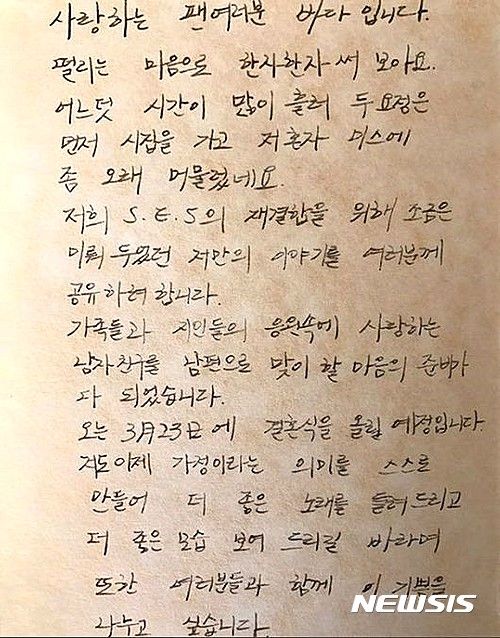 사랑하는 팬여러분 바다 입니다.
떨리는 마음으로 한자한자 써 보아요.
어느덧 시간이 많이 흘러 두 요정은
먼저 시집을 가고 저 혼자 미스에
좀 오래 머물렀네요.
저희 S.E.S의 재결합을 위해 조금은
미뤄 두었던 저만의 이야기를 여러분께
공유하려 합니다.
가족들과 지인들의 응원속에 사랑하는
남자친구를 남편으로 맞이 할 마음의 준비가
다 되었습니다.
오는 3月23日에 결혼식을 올릴 예정입니다.
저도 이제 가정이라는 의미를 스스로
만들어 더 좋은 노래를 들려드리고
더 좋은 모습 보여 드리길 바라며
또한 여러분들과 함께 이 기쁨을
나누고 싶습니다.
NEWSIS